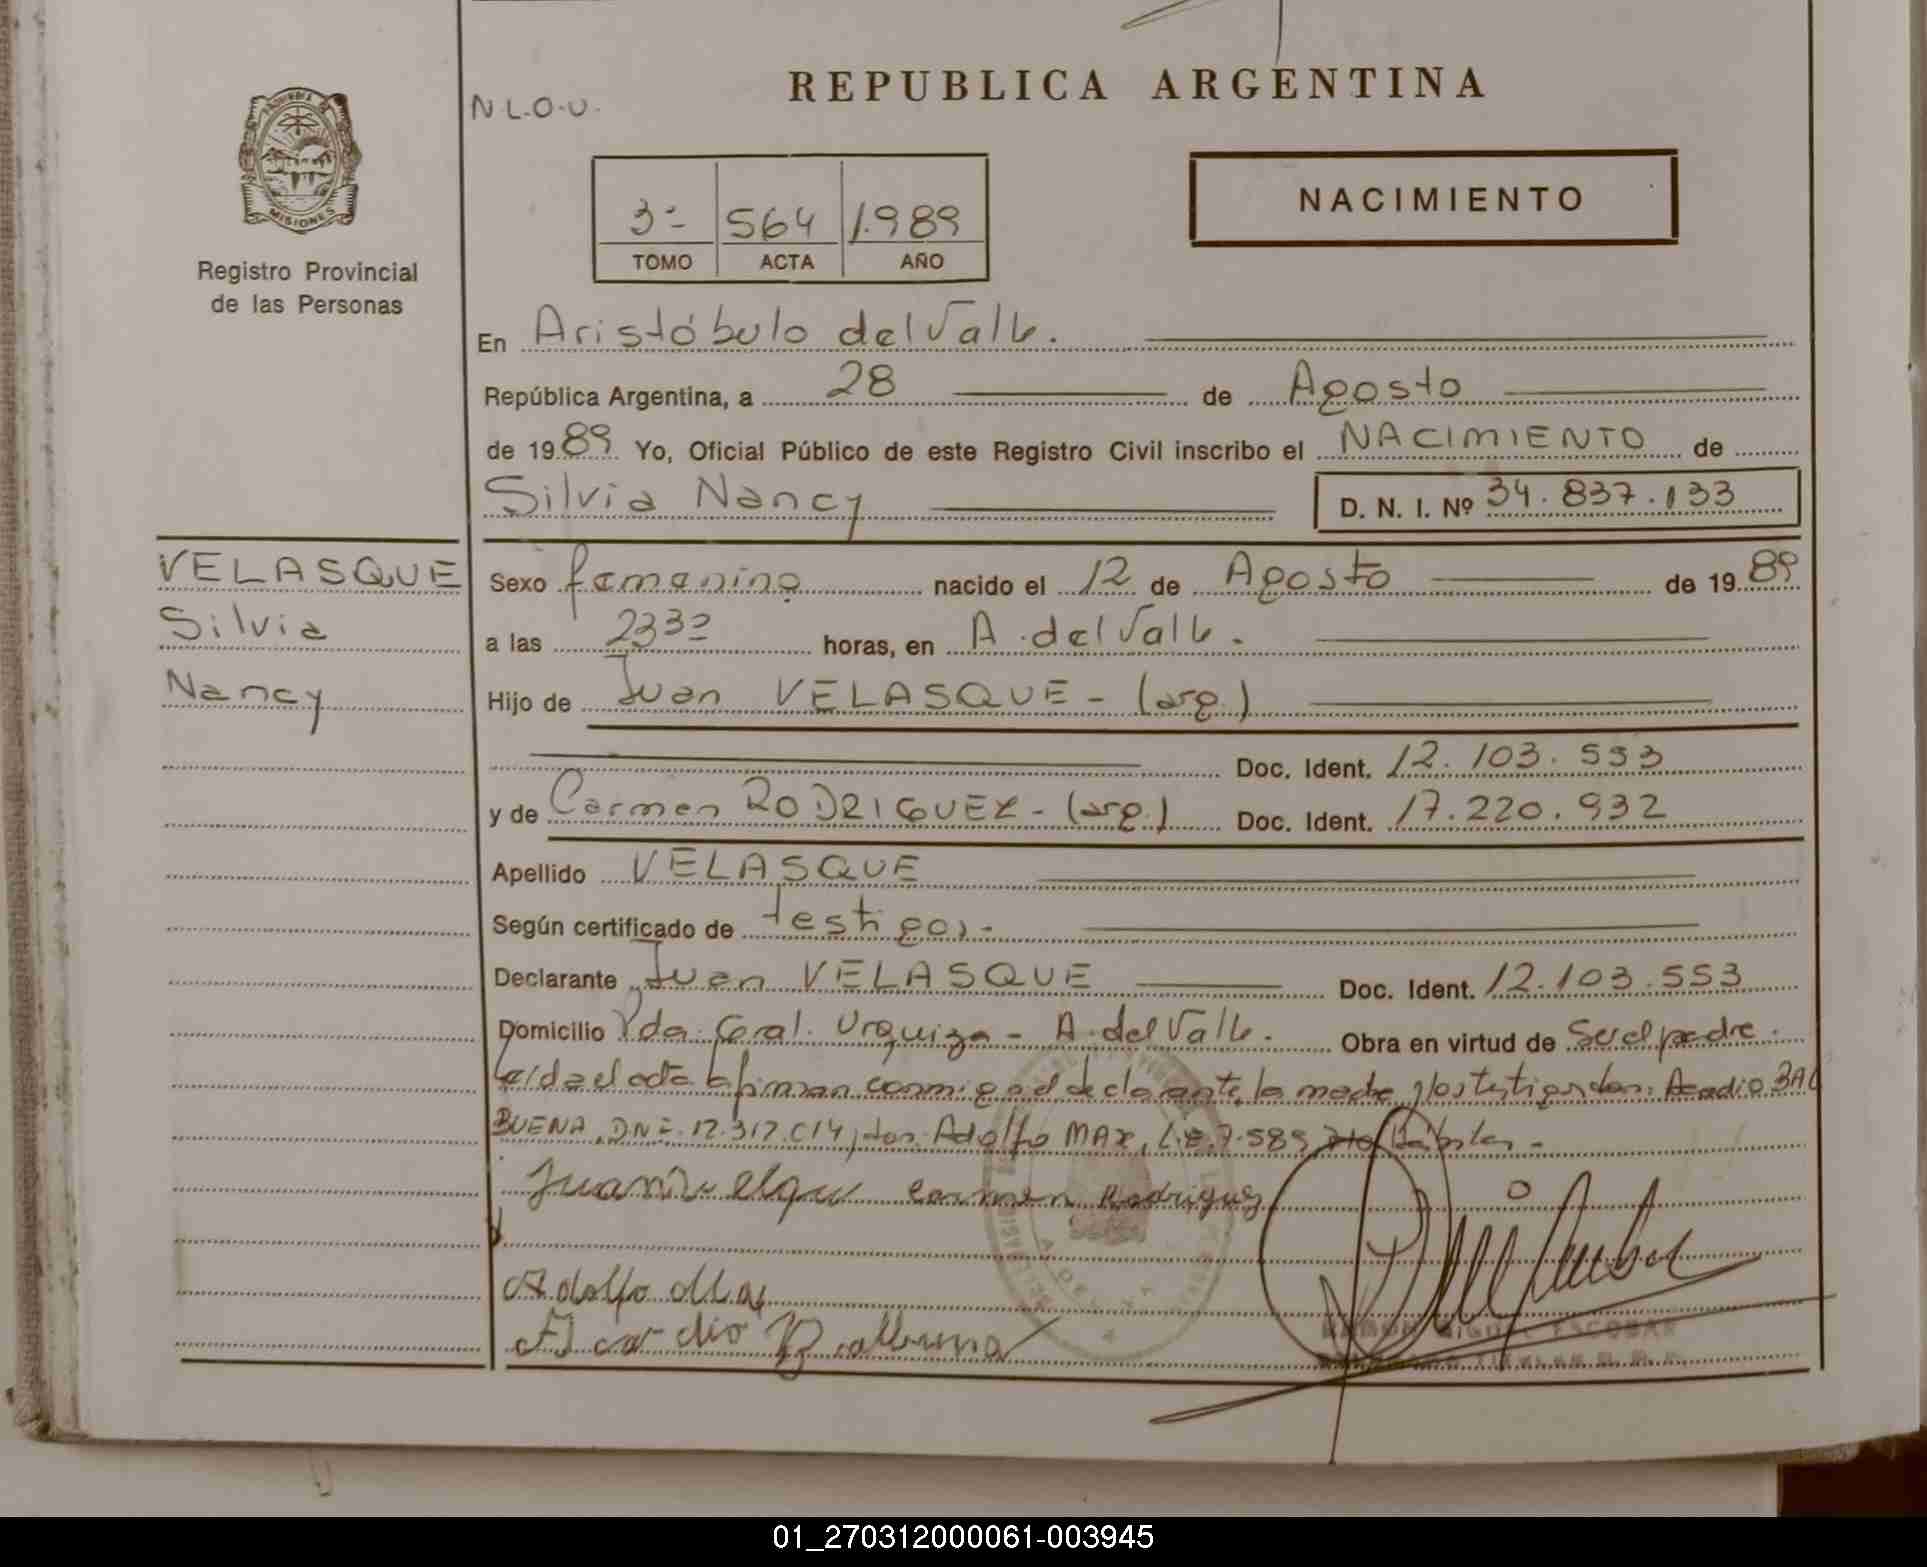 REPUBLICA ARGENTINA
N.L.O.U.
NACIMIENTO
3º 564 1.989
TOMO ACTA AÑO
MISIONES
Registro Provincial
de las Personas
En Aristóbulo del Valle.
República Argentina, a 28 de Agosto
de 1989 Yo, Oficial Público de este Registro Civil inscribo el NACIMIENTO de
Silvia Nancy D. N. I. Nº 34.837.133
VELASQUE
Silvia
Nancy
Sexo femenino nacido el 12 de Agosto de 1989
a las 2330 horas, en A. del Valle.
Hijo de Juan VELASQUE - (arg.)
Doc. Ident. 12.103.553
y de Carmen RODRIGUEZ - (arg.) Doc. Ident. 17.220.932
Apellido VELASQUE
Según certificado de testigos.-
Declarante Juan VELASQUE Doc. Ident. 12.103.553
Domicilio Pda. Gral. Urquiza - A. del Valle. Obra en virtud de Ser el padre.
Leída el acta la firman conmigo el declarante, la madre y los testigos don: Acadio BAL
BUENA, DNI. 12.317.014, don Adolfo MAX, L.E. 7.585.
Juan Velasque Carmen Rodriguez
Adolfo Max
Acadio Balbuena
RAMON MIGUEL ESCOBAR
01_270312000061-003945